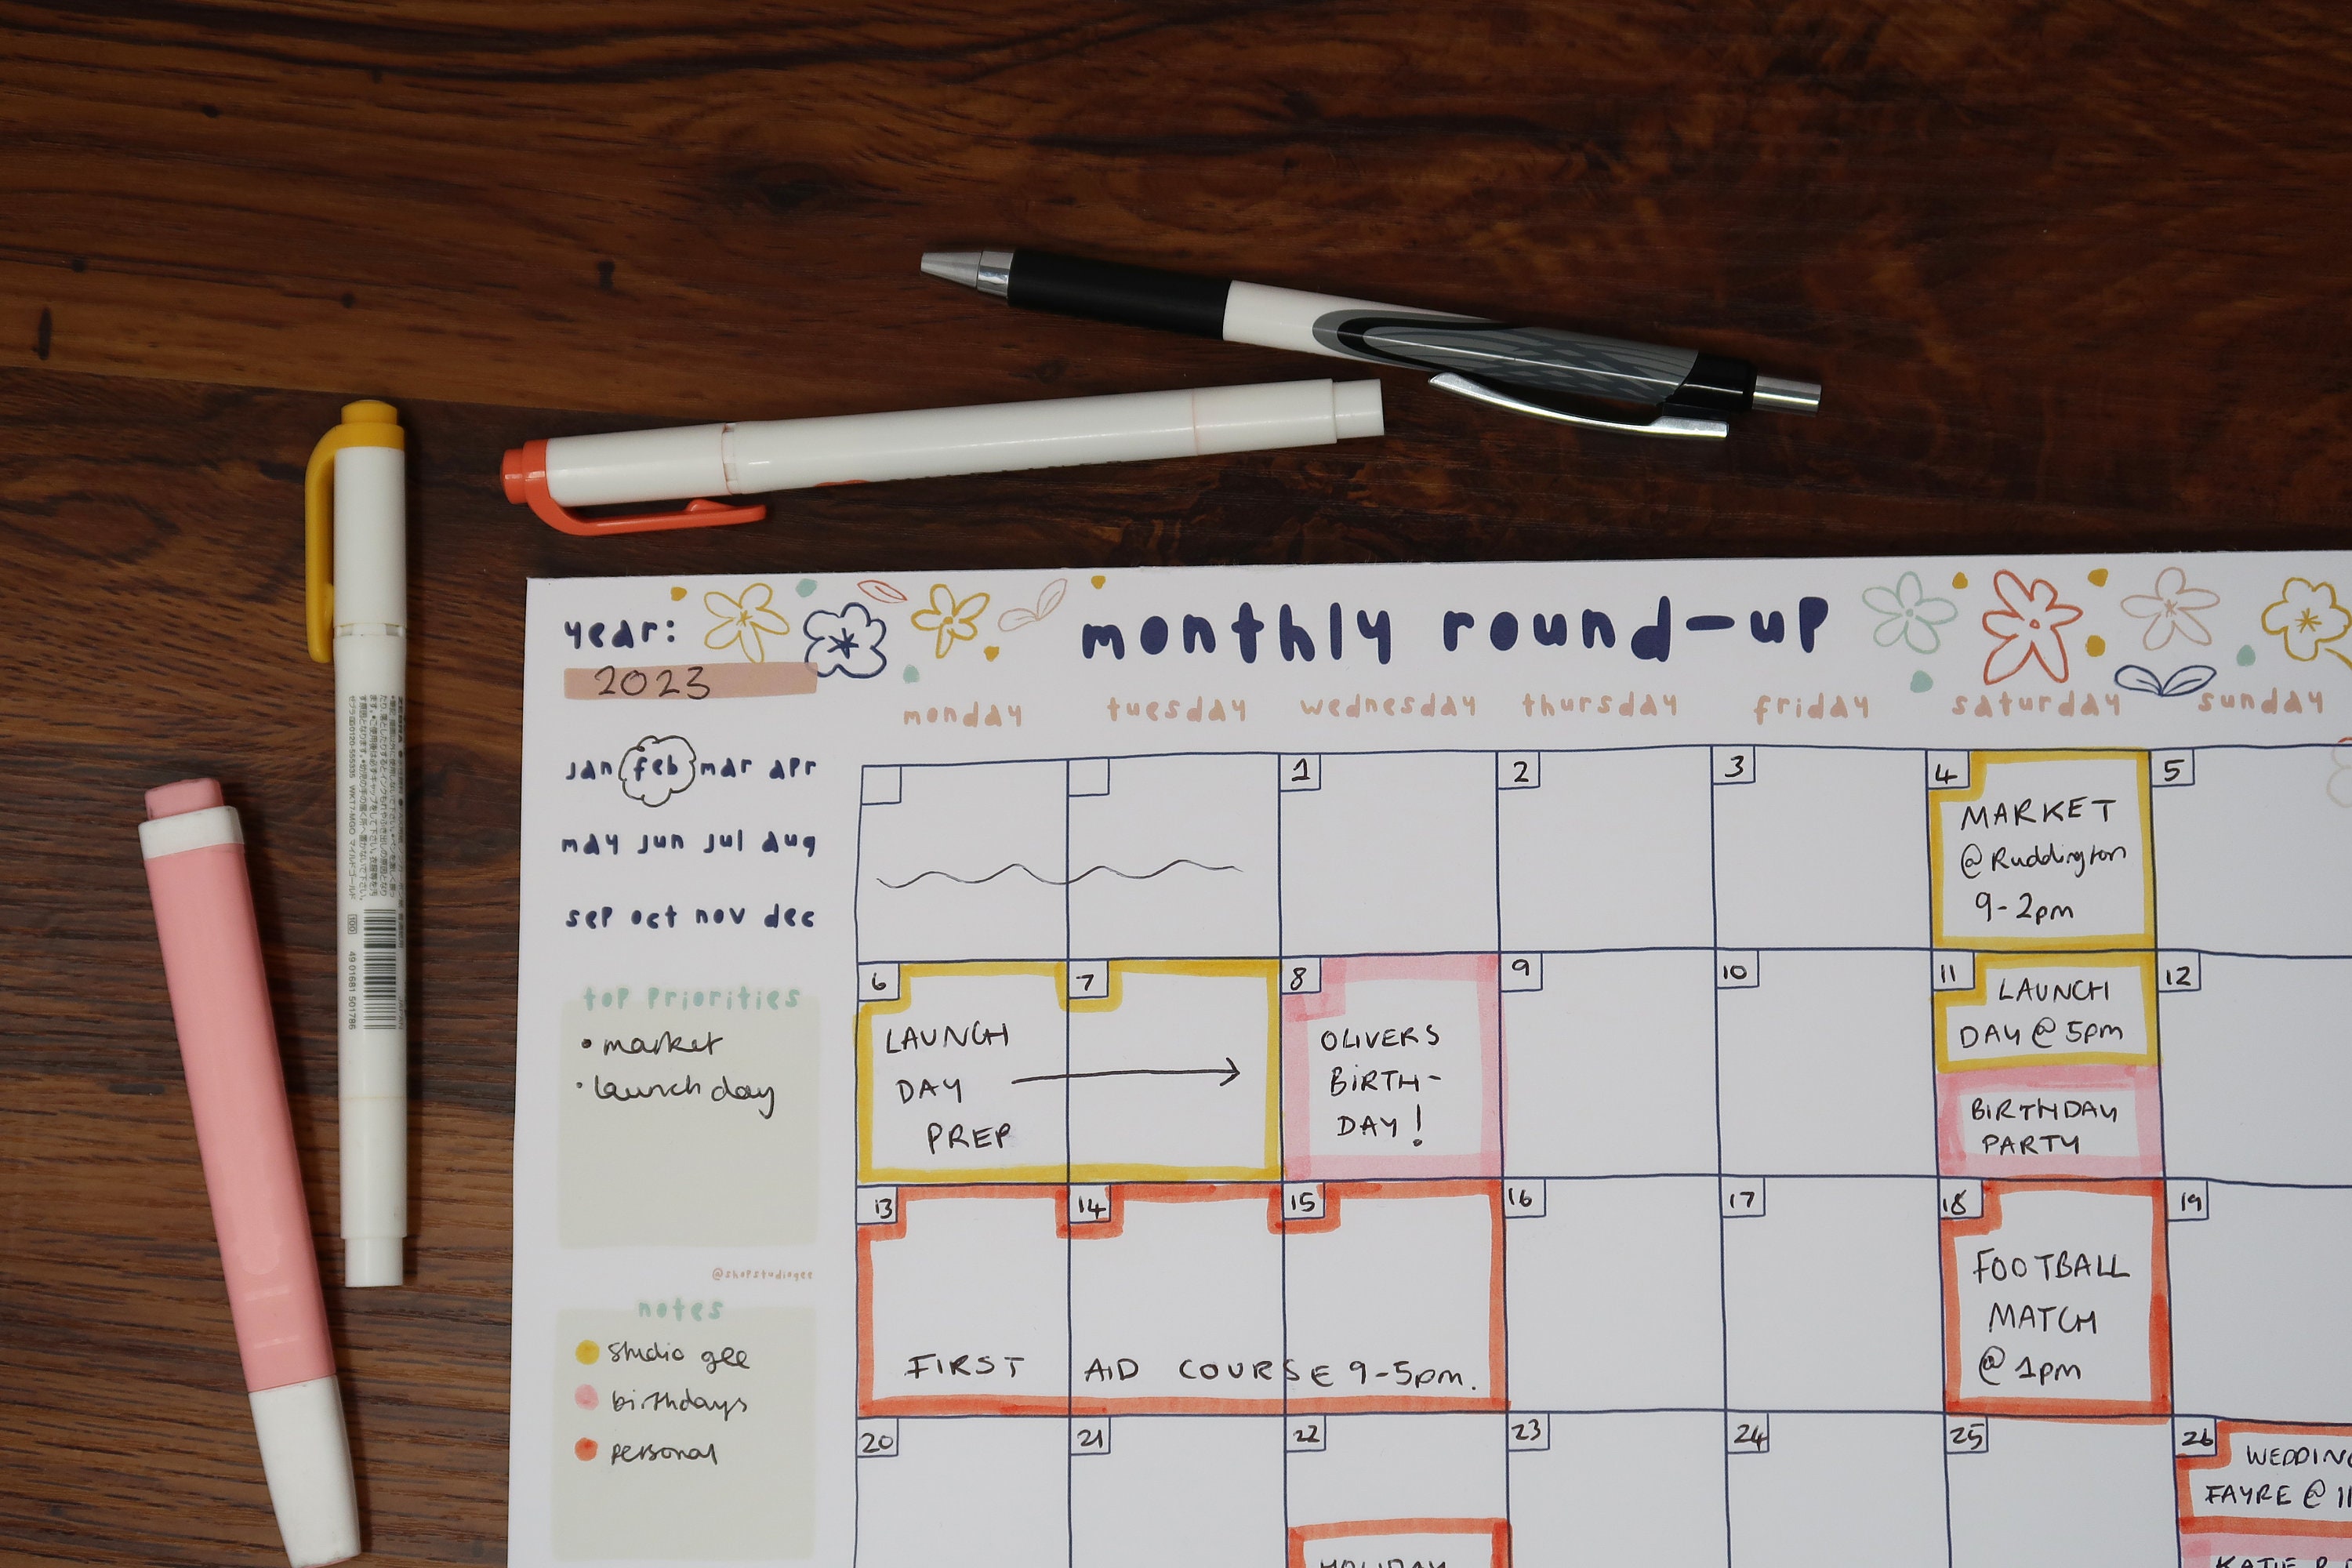 year:
monthly round-up
2023
monday tuesday wednesday thursday friday saturday sunday
jan feb mar apr
may jun jul aug
sep oct nov dec
1 2 3 4 5
MARKET
@ Ruddington
9-2pm
top priorities
• market
• launch day
6 7 8 9 10 11 12
LAUNCH
DAY
PREP
OLIVERS
BIRTH-
DAY!
LAUNCH
DAY @ 5pm
BIRTHDAY
PARTY
13 14 15 16 17 18 19
FIRST AID COURSE 9-5pm.
FOOTBALL
MATCH
@ 1pm
@shopstudiogee
notes
studio gee
birthdays
personal
20 21 22 23 24 25 26
WEDDING
FAYRE @ 11
HOLIDAY
KATIE
WKT7-MGO マイルドゴールド
100
49 01681 501786
JAPAN